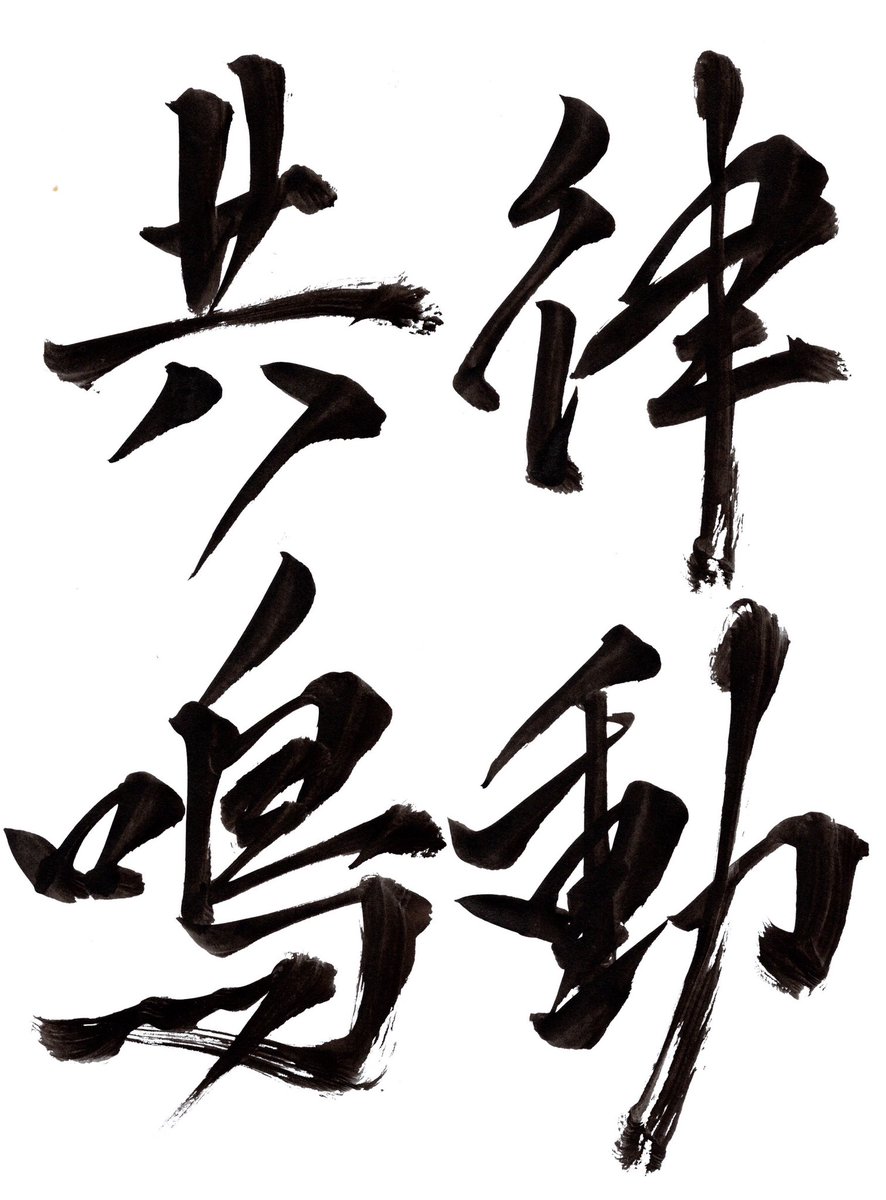 律動
共鳴